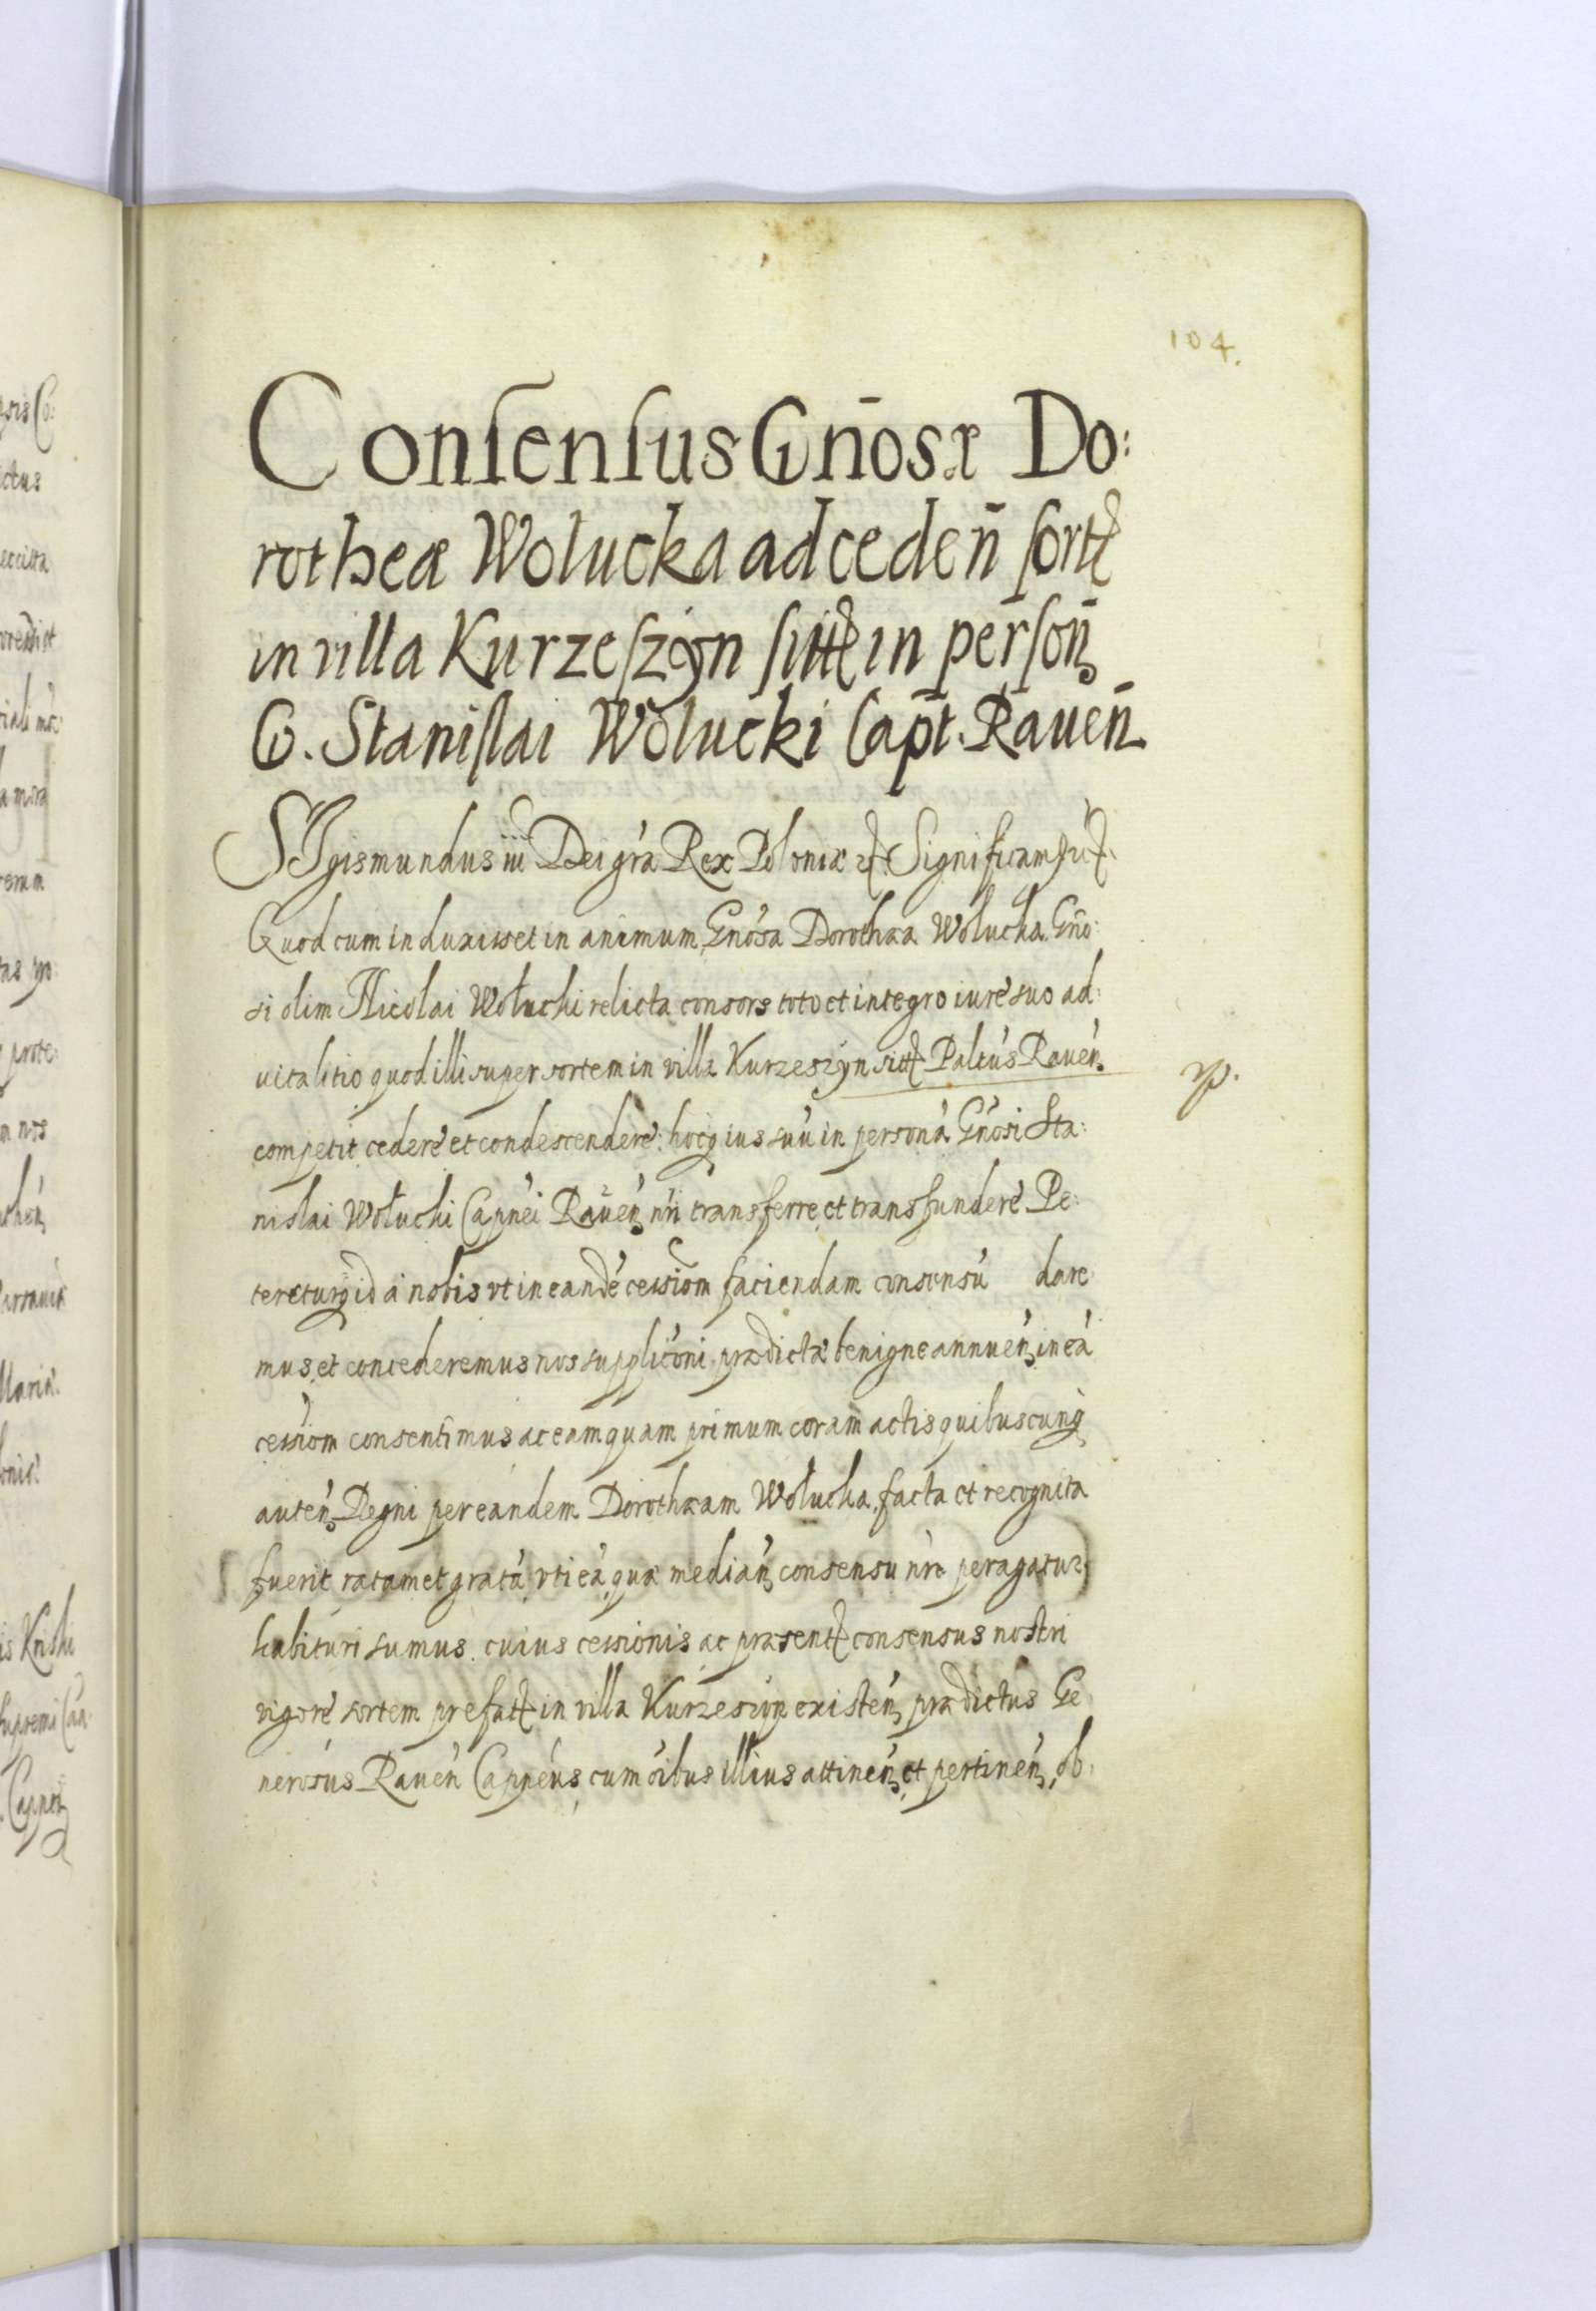 104.
Consensus Gnōsæ Do:
rotheæ Wolucka ad cedeñ sort
in villa Kurzeszyn sitt in persoñ
G. Stanislai Wolucki Capt. Raueñ
SIgismundus iii Dei gra Rex Poloniæ Significam
Quod cum induxisset in animum Gnosa Dorothæa Wolucka Gño:
si olim Nicolai Wolucki relicta consors toto et integro iure suo ad:
uitalitio quod illi super sortem in villa Kurzeszyn sitt Paltus Rauen.
competit cedere et condescendere: hocq ius suu in persona Gnosi Sta:
nislai Wolucki Capnei Rauen nri transferre et transfundere Pe:
tereturq id a nobis vt in eande cessiom faciendam consensu dare
mus et concederemus nos supplicōni prædictæ benigne annuen in ea
cessiom consentimus ac eam quam primum coram actis quibuscunq
auten Regni per eandem Dorothæam Wolucka facta et recognita
fuerit ratam et gratā vti eā quæ median consensu nro peragatur
habituri sumus. cuius cessionis ac præsent consensus nostri
vigore sortem prefatt in villa Kurzeszyn existen prædictus Ge
nerosus Rauen Capneus cum oibus illius attinen et pertinen ob: